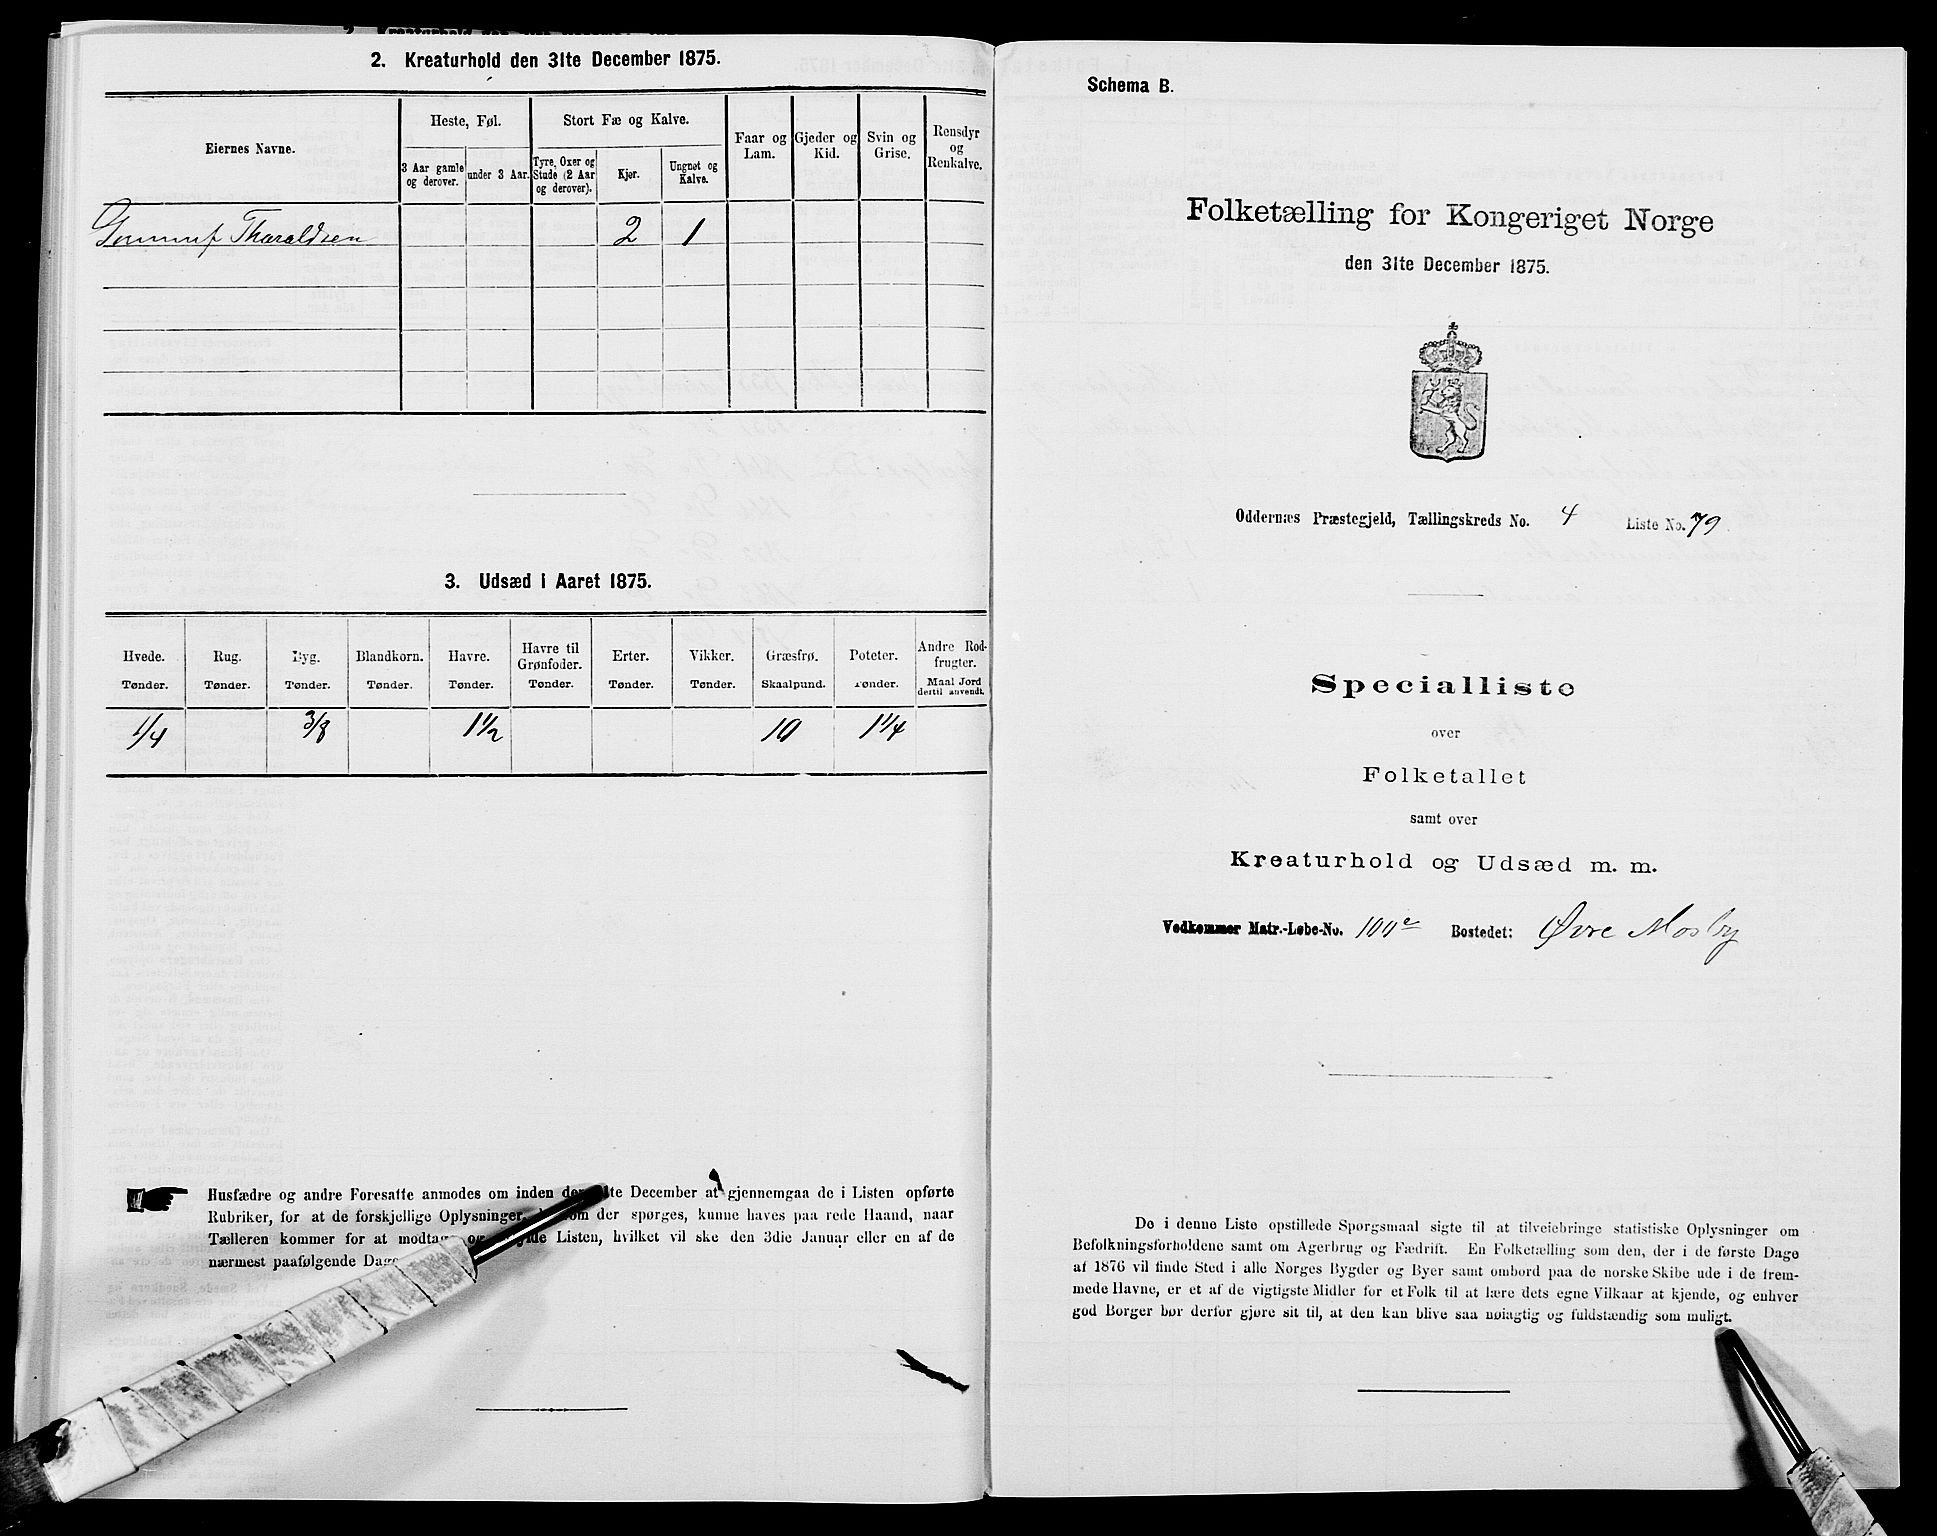 2. Kreaturhold den 31te December 1875.
Eiernes Navne.
Heste, Føl.
3 Aar gamle og derover.
under 3 Aar.
Stort Fæ og Kalve.
Tyre, Oxer og Stude (2 Aar og derover).
Kjør.
Ungnøt og Kalve.
Faar og Lam.
Gjeder og Kid.
Svin og Grise.
Rensdyr og Renkalve.
Tharaldsen 2 1
3. Udsæd i Aaret 1875.
Hvede. Rug. Byg. Blandkorn. Havre. Havre til Grønfoder. Erter. Vikker. Græsfrø. Poteter. Andre Rodfrugter.
Tønder. Tønder. Tønder. Tønder. Tønder. Tønder. Tønder. Tønder. Skaalpund. Tønder. Maal Jord dertil anvendt.
1/4 3/8 1 1/2 10 1 1/4
Husfædre og andre Foresatte anmodes om inden den 31te December at gjennemgaa de i Listen opførte
Rubriker, for at de forskjellige Oplysninger, som der spørges, kunne haves paa rede Haand, naar
Tælleren kommer for at modtage og Listen, hvilket vil ske den 3die Januar eller en af de
nærmest paafølgende Dage
Schema B.
Folketælling for Kongeriget Norge
den 31te December 1875.
Oddernæs Præstegjeld, Tællingskreds No. 4 Liste No. 79
Specialliste
over
Folketallet
samt over
Kreaturhold og Udsæd m. m.
Vedkommer Matr.-Løbe-No. 100e Bostedet: Øvre Mosby
De i denne Liste opstillede Spørgsmaal sigte til at tilveiebringe statistiske Oplysninger om
Befolkningsforholdene samt om Agerbrug og Fædrift. En Folketælling som den, der i de første Dage
af 1876 vil finde Sted i alle Norges Bygder og Byer samt ombord paa de norske Skibe ude i de frem-
mede Havne, er et af de vigtigste Midler for et Folk til at lære dets egne Vilkaar at kjende, og enhver
god Borger bør derfor gjøre sit til, at den kan blive saa nøiagtig og fuldstændig som muligt.